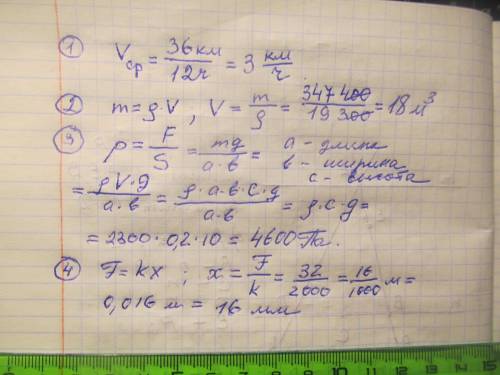 ① Vср = 36 км / 12 ч = 3 км/ч
② m = ρ·V, V = m/ρ = 347 400 / 19 300 = 18 м³
③ p = F/S = mg / a·в = а - длина
в - ширина
с - высота
= ρV·g / a·в = ρ·a·в·c·g / a·в = ρ·c·g =
= 2300·0,2·10 = 4600 Па.
④ F = kx ; x = F/k = 32/2000 = 16/1000 м =
0,016 м = 16 мм
1 2 3 4 5 6 7 8 9 10 11 12 13 14 15